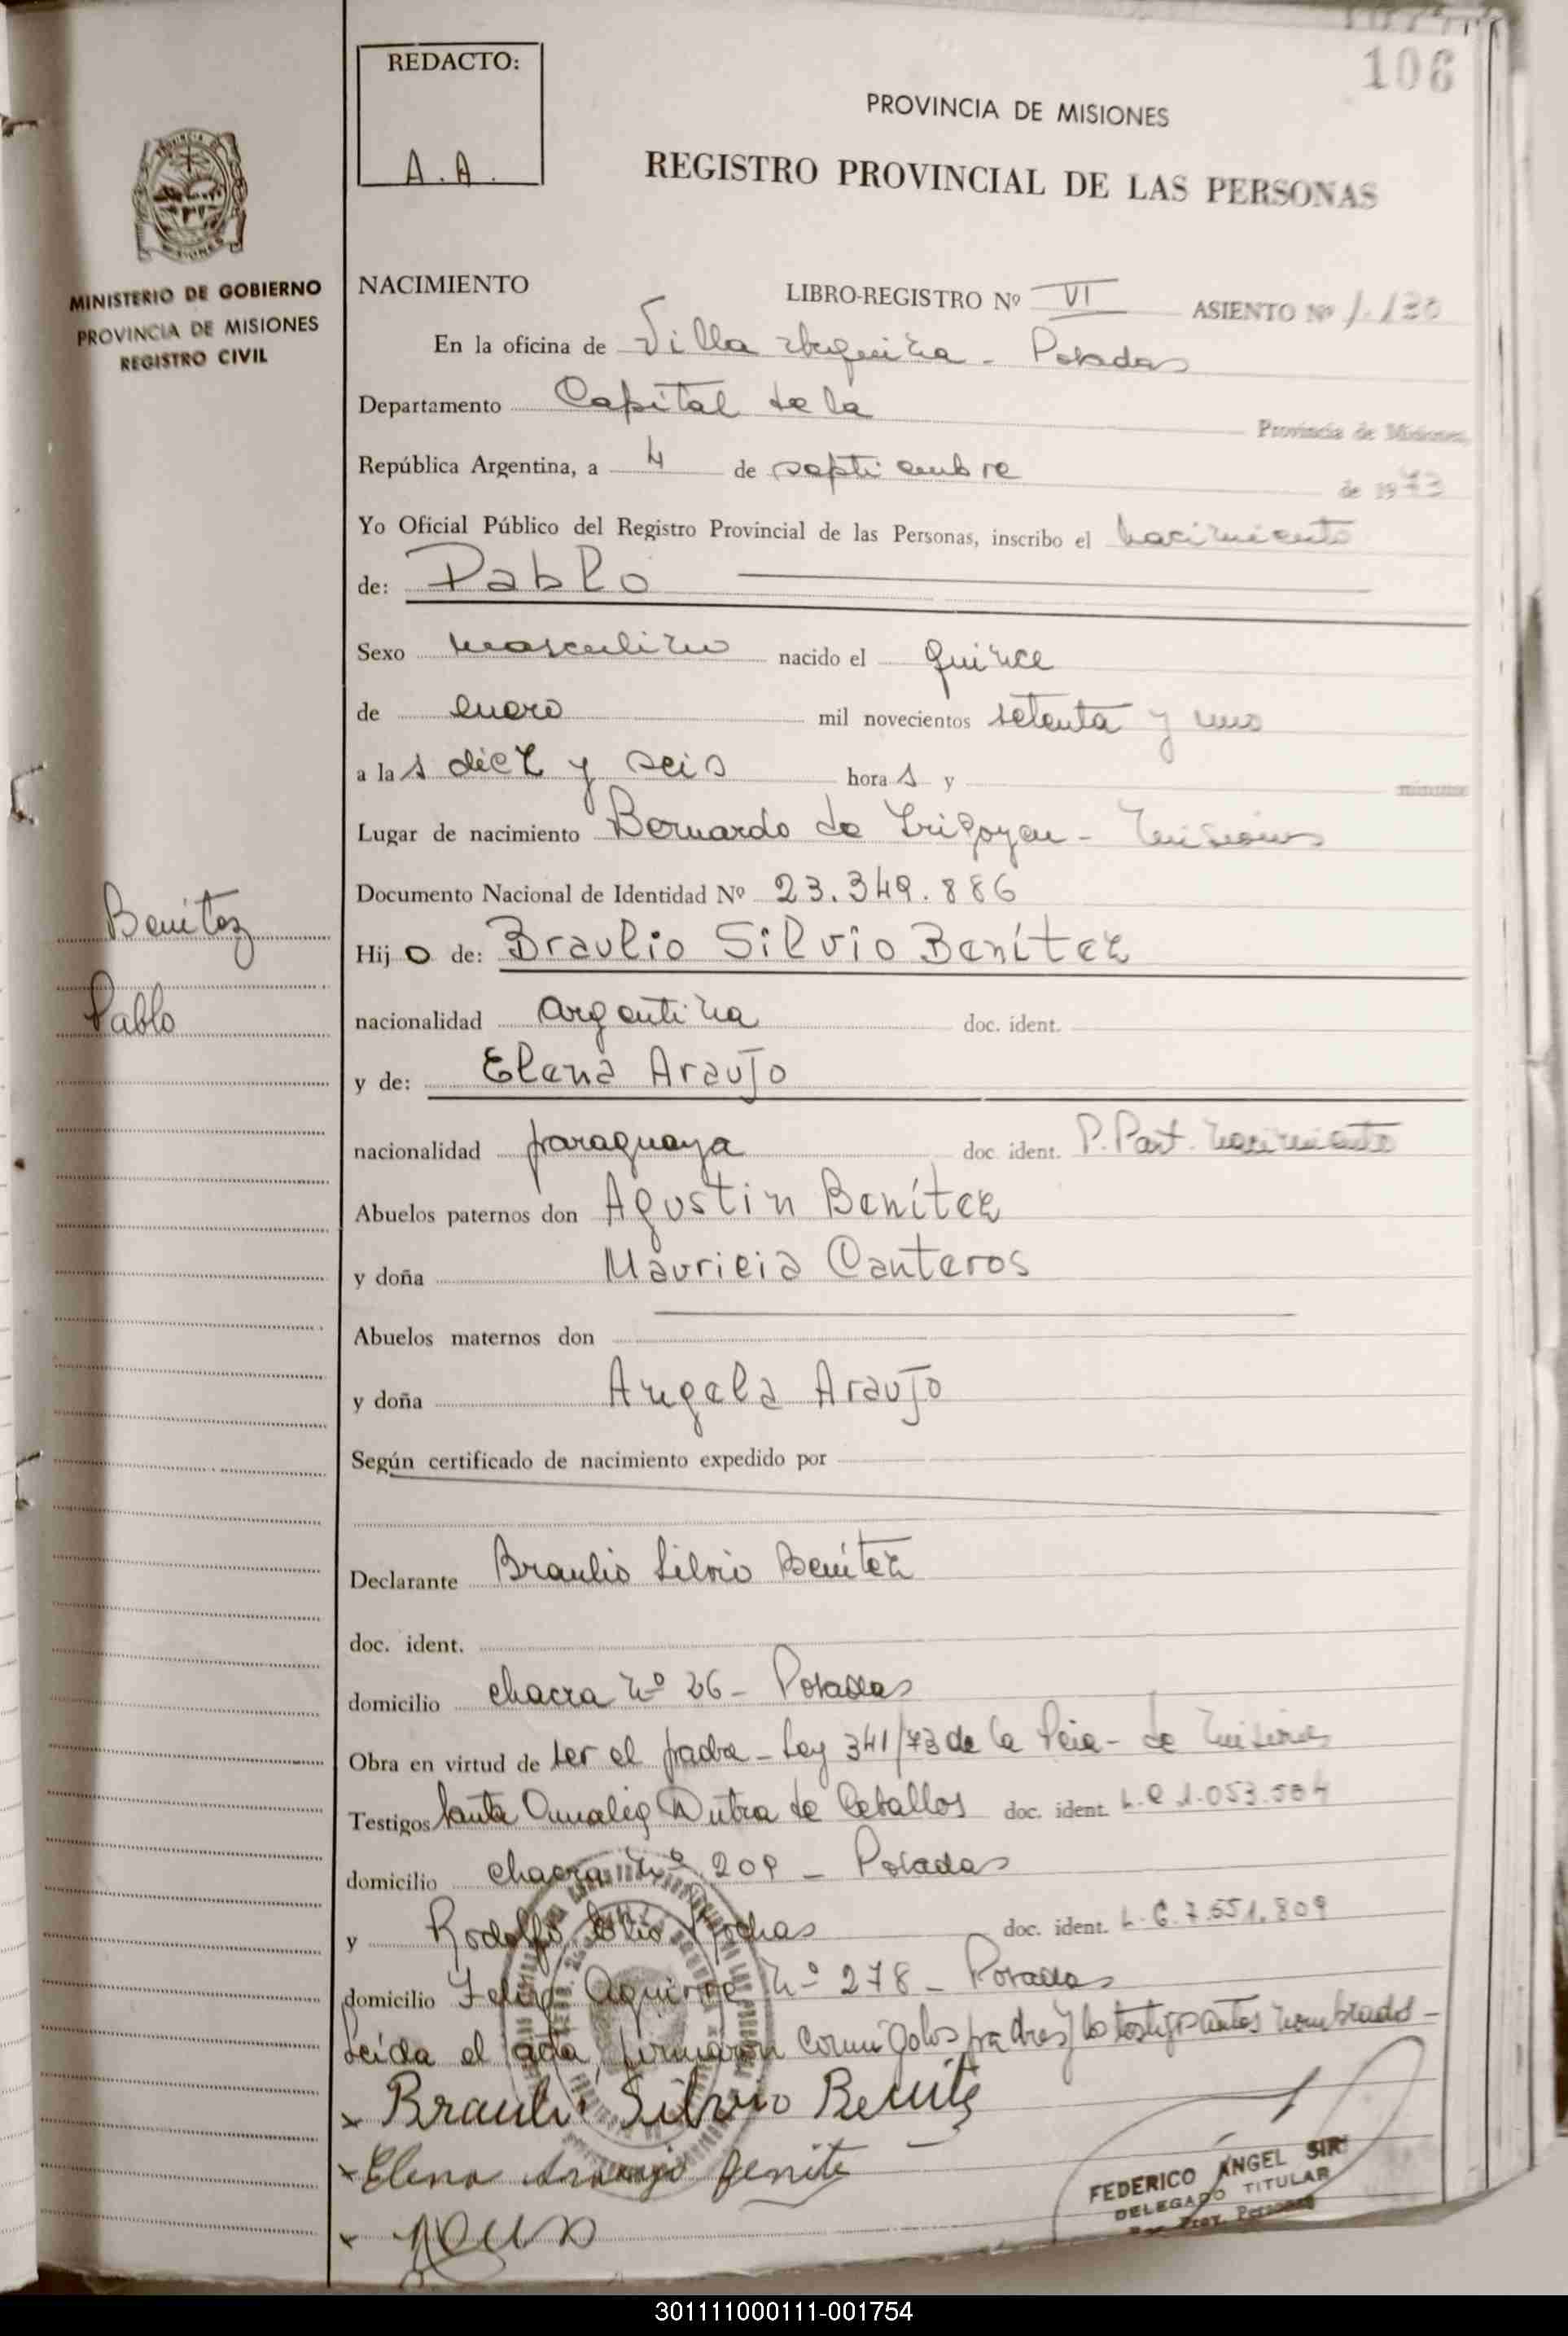 106
REDACTO:
A.A.
PROVINCIA DE MISIONES
REGISTRO PROVINCIAL DE LAS PERSONAS
MINISTERIO DE GOBIERNO
PROVINCIA DE MISIONES
REGISTRO CIVIL
NACIMIENTO LIBRO-REGISTRO Nº VI ASIENTO Nº 1.130
En la oficina de Villa Urquiza - Posadas
Departamento Capital de la Provincia de Misiones,
República Argentina, a 4 de septiembre de 1973
Yo Oficial Público del Registro Provincial de las Personas, inscribo el nacimiento
de: Pablo
Sexo masculino nacido el quince
de enero mil novecientos setenta y uno
a las diez y seis horas y minutos
Lugar de nacimiento Bernardo de Irigoyen - Misiones
Documento Nacional de Identidad Nº 23.349.886
Benitez
Pablo
Hijo de: Braulio Silvio Benítez
nacionalidad argentina doc. ident.
y de: Elena Araujo
nacionalidad paraguaya doc. ident. P. Part. nacimiento
Abuelos paternos don Agustin Benítez
y doña Mauricia Canteros
Abuelos maternos don
y doña Angela Araujo
Según certificado de nacimiento expedido por
Declarante Braulio Silvio Benítez
doc. ident.
domicilio chacra nº 26 - Posadas
Obra en virtud de ser el padre - Ley 341/73 de la Pcia - de Misiones
Testigos Santa Dutra de Ceballos doc. ident. L.C 1.053.504
domicilio chacra nº 209 - Posadas
y Rodolfo doc. ident. L.E. 7.551.809
domicilio Felix Aguirre nº 278 - Posadas
Leída el acta, firmaron conmigo los padres y los testigos antes nombrados -
x Braulio Silvio Benitez
x Elena Araujo Benite
x
FEDERICO ÁNGEL SIR
DELEGADO TITULAR
Reg. Prov. Personas
301111000111-001754